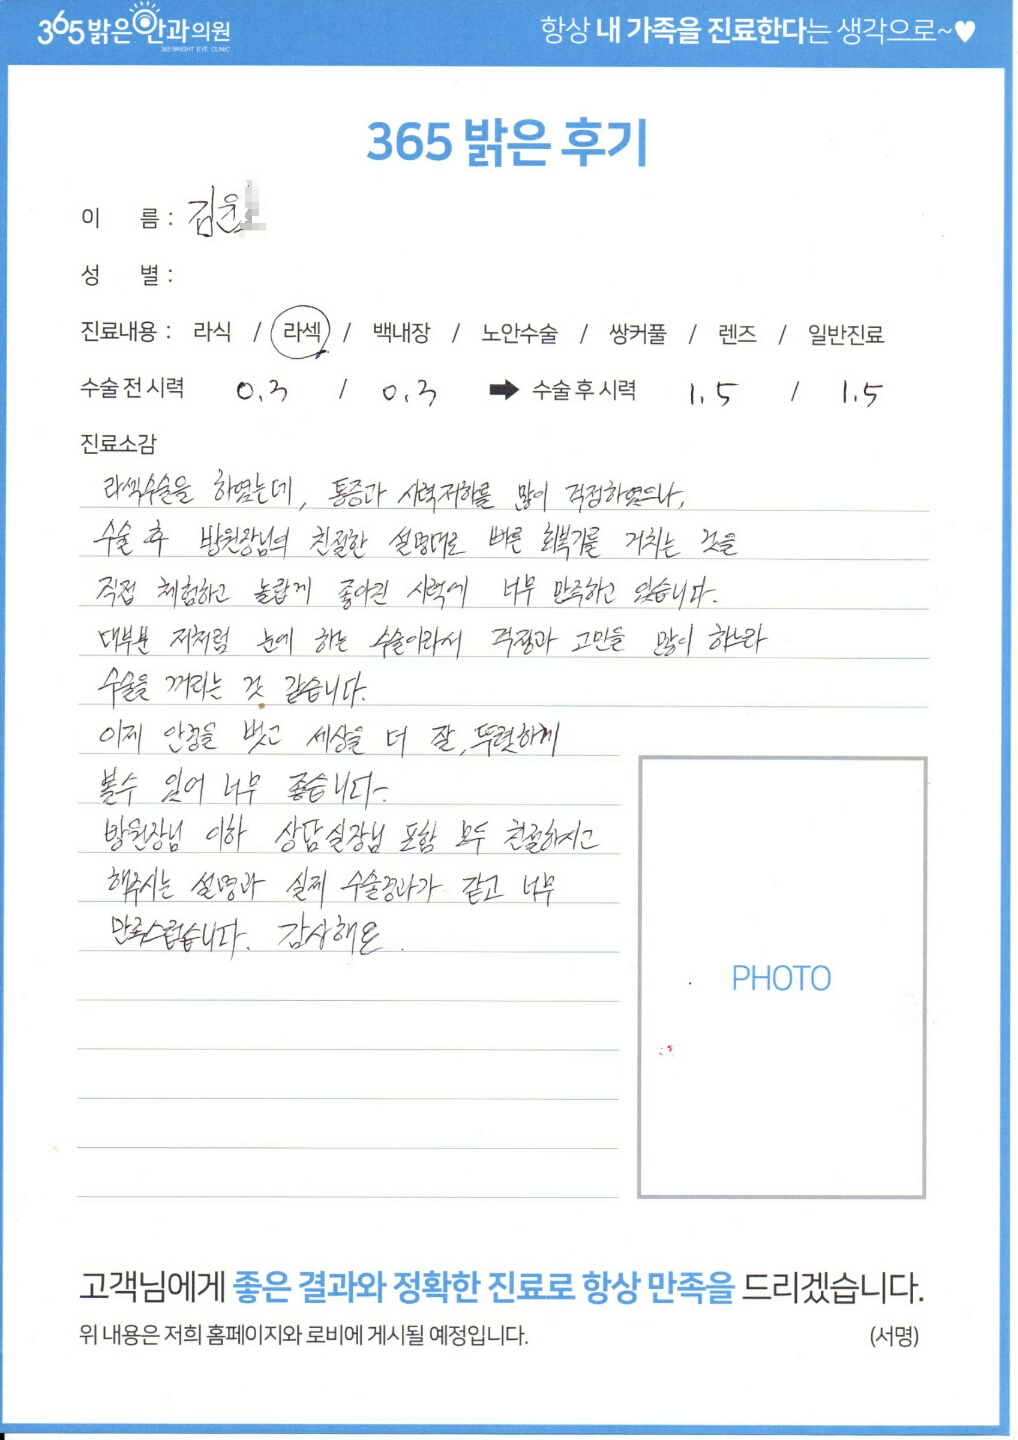 365밝은안과의원
365 BRIGHT EYE CLINIC
항상 내 가족을 진료한다는 생각으로~♥
365 밝은 후기
이 름 : 김윤
성 별 :
진료내용 : 라식 / 라섹 / 백내장 / 노안수술 / 쌍커풀 / 렌즈 / 일반진료
수술 전 시력 0.3 / 0.3 ➡ 수술 후 시력 1.5 / 1.5
진료소감
라섹수술을 하였는데, 통증과 시력저하를 많이 걱정하였으나,
수술 후 방원장님의 친절한 설명대로 빠른 회복기를 거치는 것을
직접 체험하고 놀랍게 좋아진 시력에 너무 만족하고 있습니다.
대부분 저처럼 눈에 하는 수술이라서 걱정과 고민을 많이 하느라
수술을 꺼리는 것 같습니다.
이제 안경을 벗고 세상을 더 잘, 뚜렷하게
볼수 있어 너무 좋습니다.
방원장님 이하 상담실장님 포함 모두 친절하시고
해주시는 설명과 실제 수술결과가 같고 너무
만족스럽습니다. 감사해요.
PHOTO
고객님에게 좋은 결과와 정확한 진료로 항상 만족을 드리겠습니다.
위 내용은 저희 홈페이지와 로비에 게시될 예정입니다. (서명)